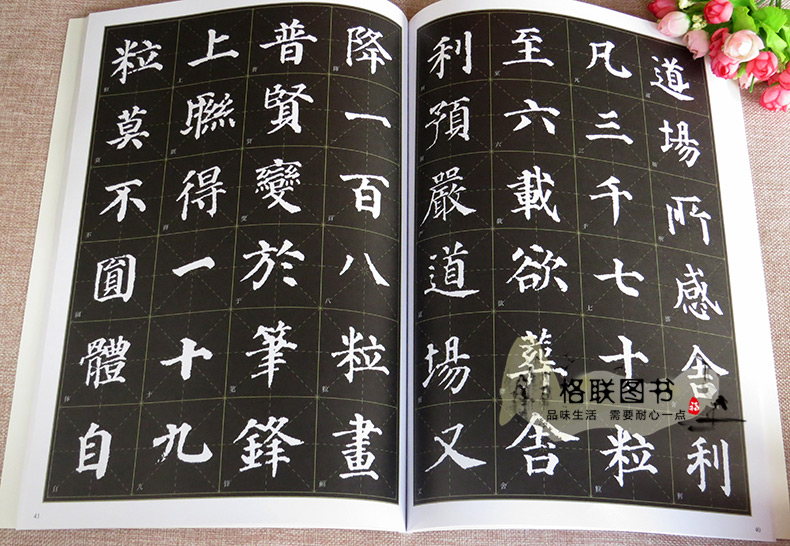 道場所感舍利
凡三千七十粒
至六載欲葬舍
利預嚴道場又
40
降一百八粒畫
普賢變於筆鋒
上聯得一十九
粒莫不圓體自
41
格联图书
品味生活 需要耐心一点